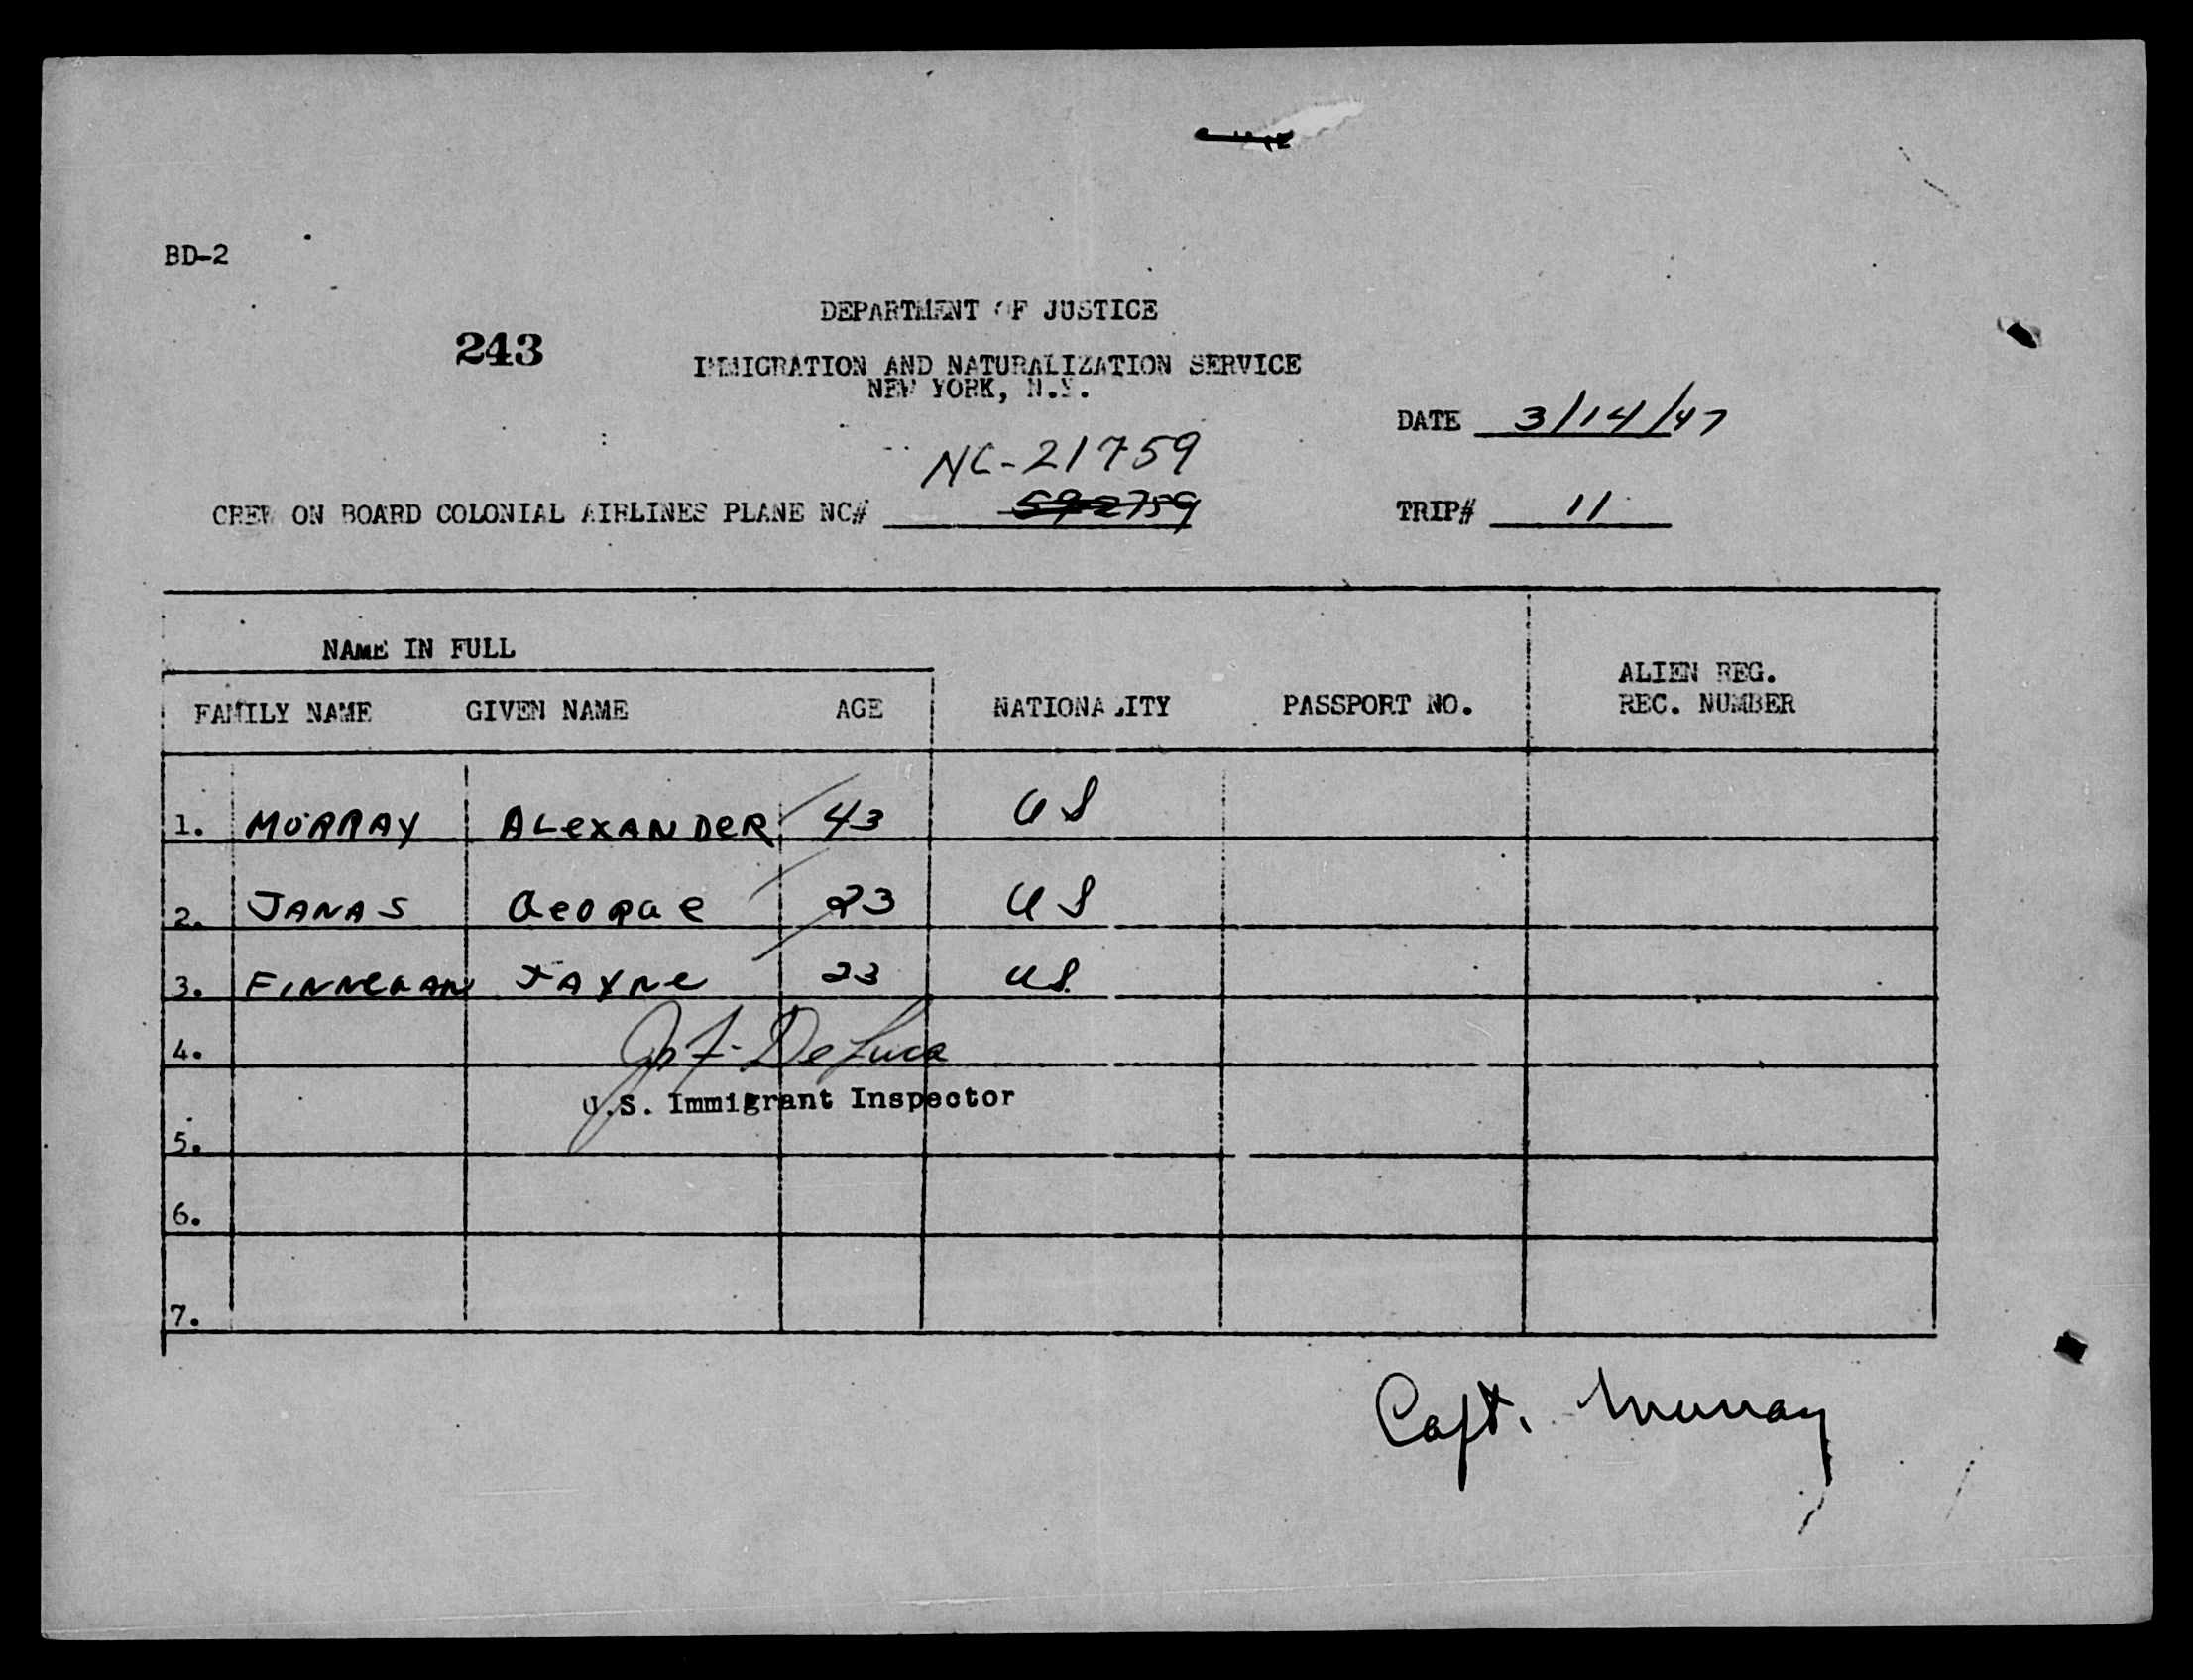 BD-2
DEPARTMENT OF JUSTICE
243
IMMIGRATION AND NATURALIZATION SERVICE
NEW YORK, N.Y.
DATE 3/14/47
NC-21759
CREW ON BOARD COLONIAL AIRLINES PLANE NC# 592759
TRIP# 11
NAME IN FULL
ALIEN REG.
FAMILY NAME GIVEN NAME AGE NATIONALITY PASSPORT NO. REC. NUMBER
1. MURRAY ALEXANDER 43 US
2. JANAS GEORGE 23 US
3. FINNEGAN JAYNE 23 US
4. De Luca
U.S. Immigrant Inspector
5.
6.
7.
Capt. Murray